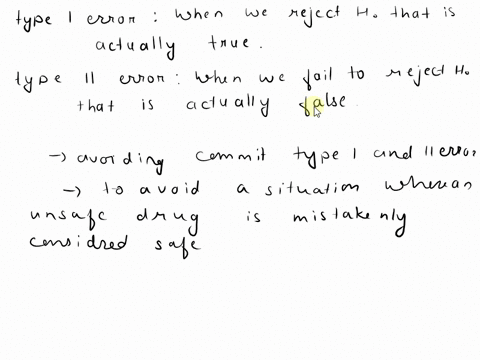 type I error : when we reject H₀ that is
actually true.
type II error : when we fail to reject H₀
that is actually false
→ avording commit type I and II error
→ to avoid a situation where an
unsafe drug is mistakenly
considred safe